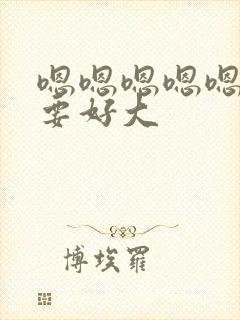 嗯嗯嗯嗯嗯
要好大
博埃羅